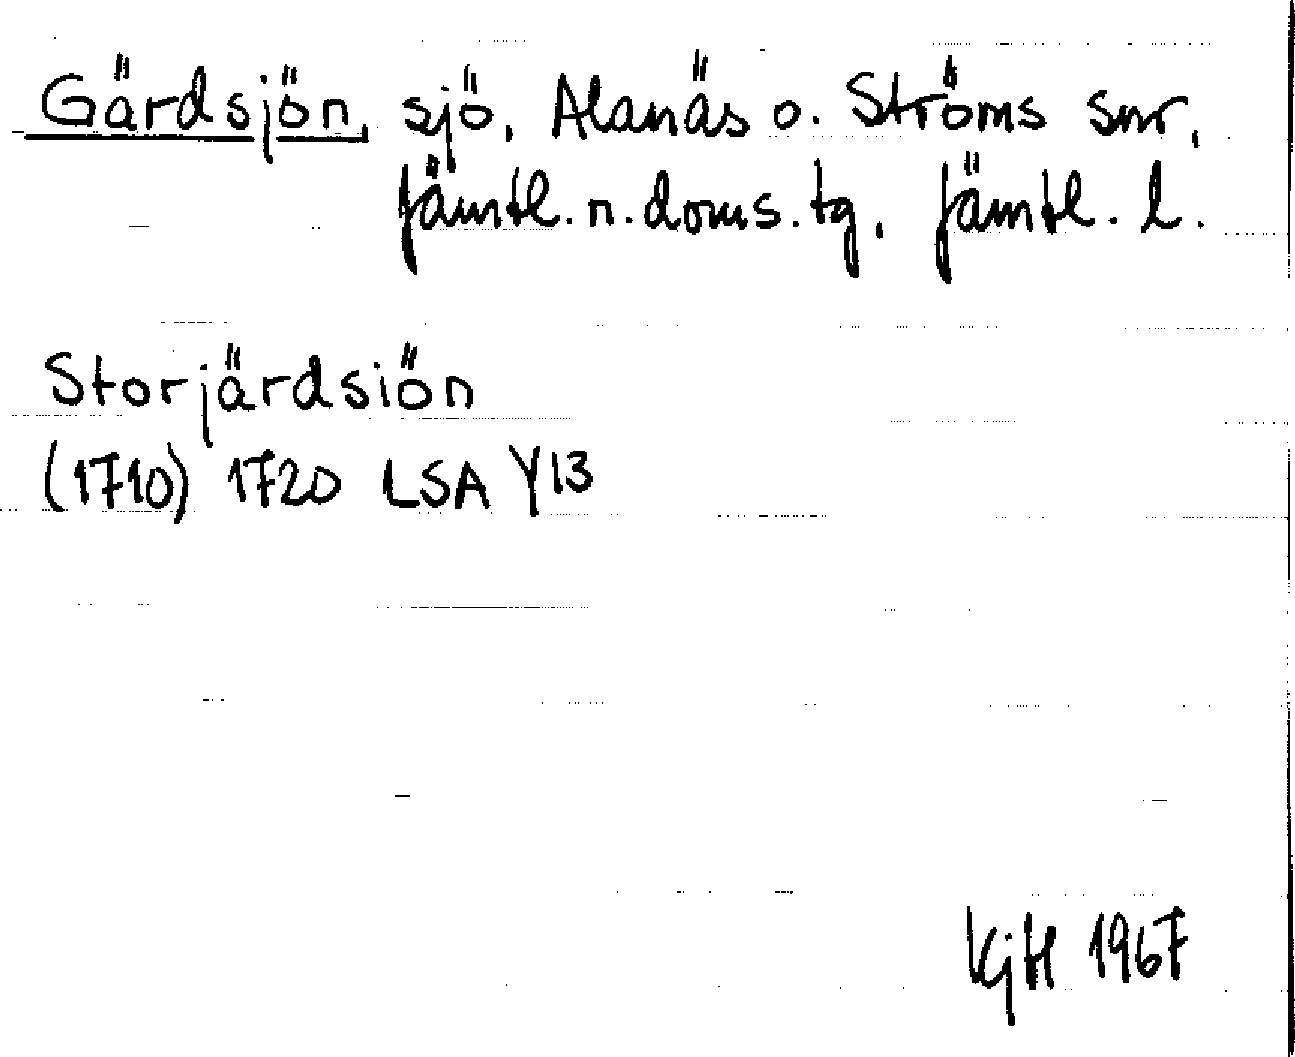 Gärdsjön, sjö, Alanäs o. Ströms snr,
Jämtl. n. doms. tg, Jämtl. l.
Storjärdsiön
(1710) 1720 LSA Y13
KjH 1967